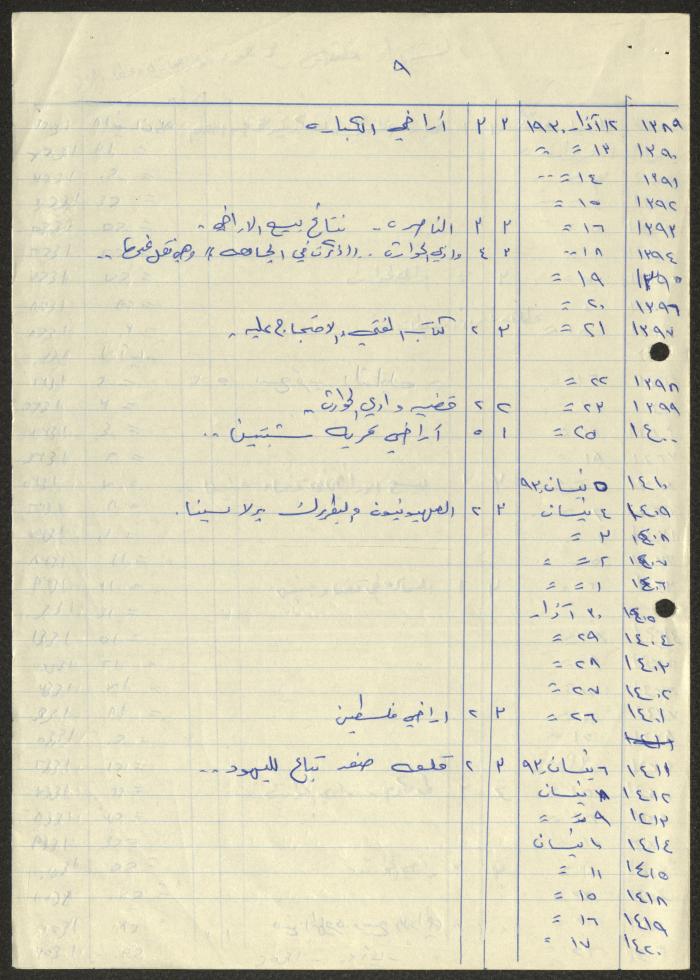 ٩
١٣٨٩ ١٢ آذار ١٩٣٠ ٣ ٣ أراضي الكبارة
١٣٩٠ ١٣ = =
١٣٩١ ١٤ =
١٣٩٢ ١٥ =
١٣٩٣ ١٦ = ٣ ٣ الناصرة.. نتائج بيع الاراضي..
١٣٩٤ ١٨ .. ٣ ٤ وادي الحوارث..
١٣٩٥ ١٩ =
١٣٩٦ ٢٠ =
١٣٩٧ ٢١ = ٣ ٢ كتاب المفتي والاحتجاج عليه..
١٣٩٨ ٢٢ =
١٣٩٩ ٢٣ = ٢ ٢ قضية وادي الحوارث..
١٤٠٠ ٢٥ = ١ ٥ أراضي قرية شبتين..
١٤١٠ ٥ نيسان ٩٣٠
١٤٠٩ ٤ نيسان ٣ ٢ الصهيونيون والبطريرك برلاسينا.
١٤٠٨ ٣ =
١٤٠٧ ٢ = =
١٤٠٦ ١ = =
١٤٠٥ ٣٠ آذار
١٤٠٤ ٢٩ =
١٤٠٣ ٢٨ =
١٤٠٢ ٢٧ =
١٤٠١ ٢٦ = ٣ ٢ اراضي فلسطين
١٤١١ ٦ نيسان ٩٣٠ ٣ ٢ قلعة صفد تباع لليهود..
١٤١٢ ٨ نيسان
١٤١٣ ٩ =
١٤١٤ ١٠ نيسان
١٤١٥ ١١ =
١٤١٨ ١٥ =
١٤١٩ ١٦ =
١٤٢٠ ١٧ =